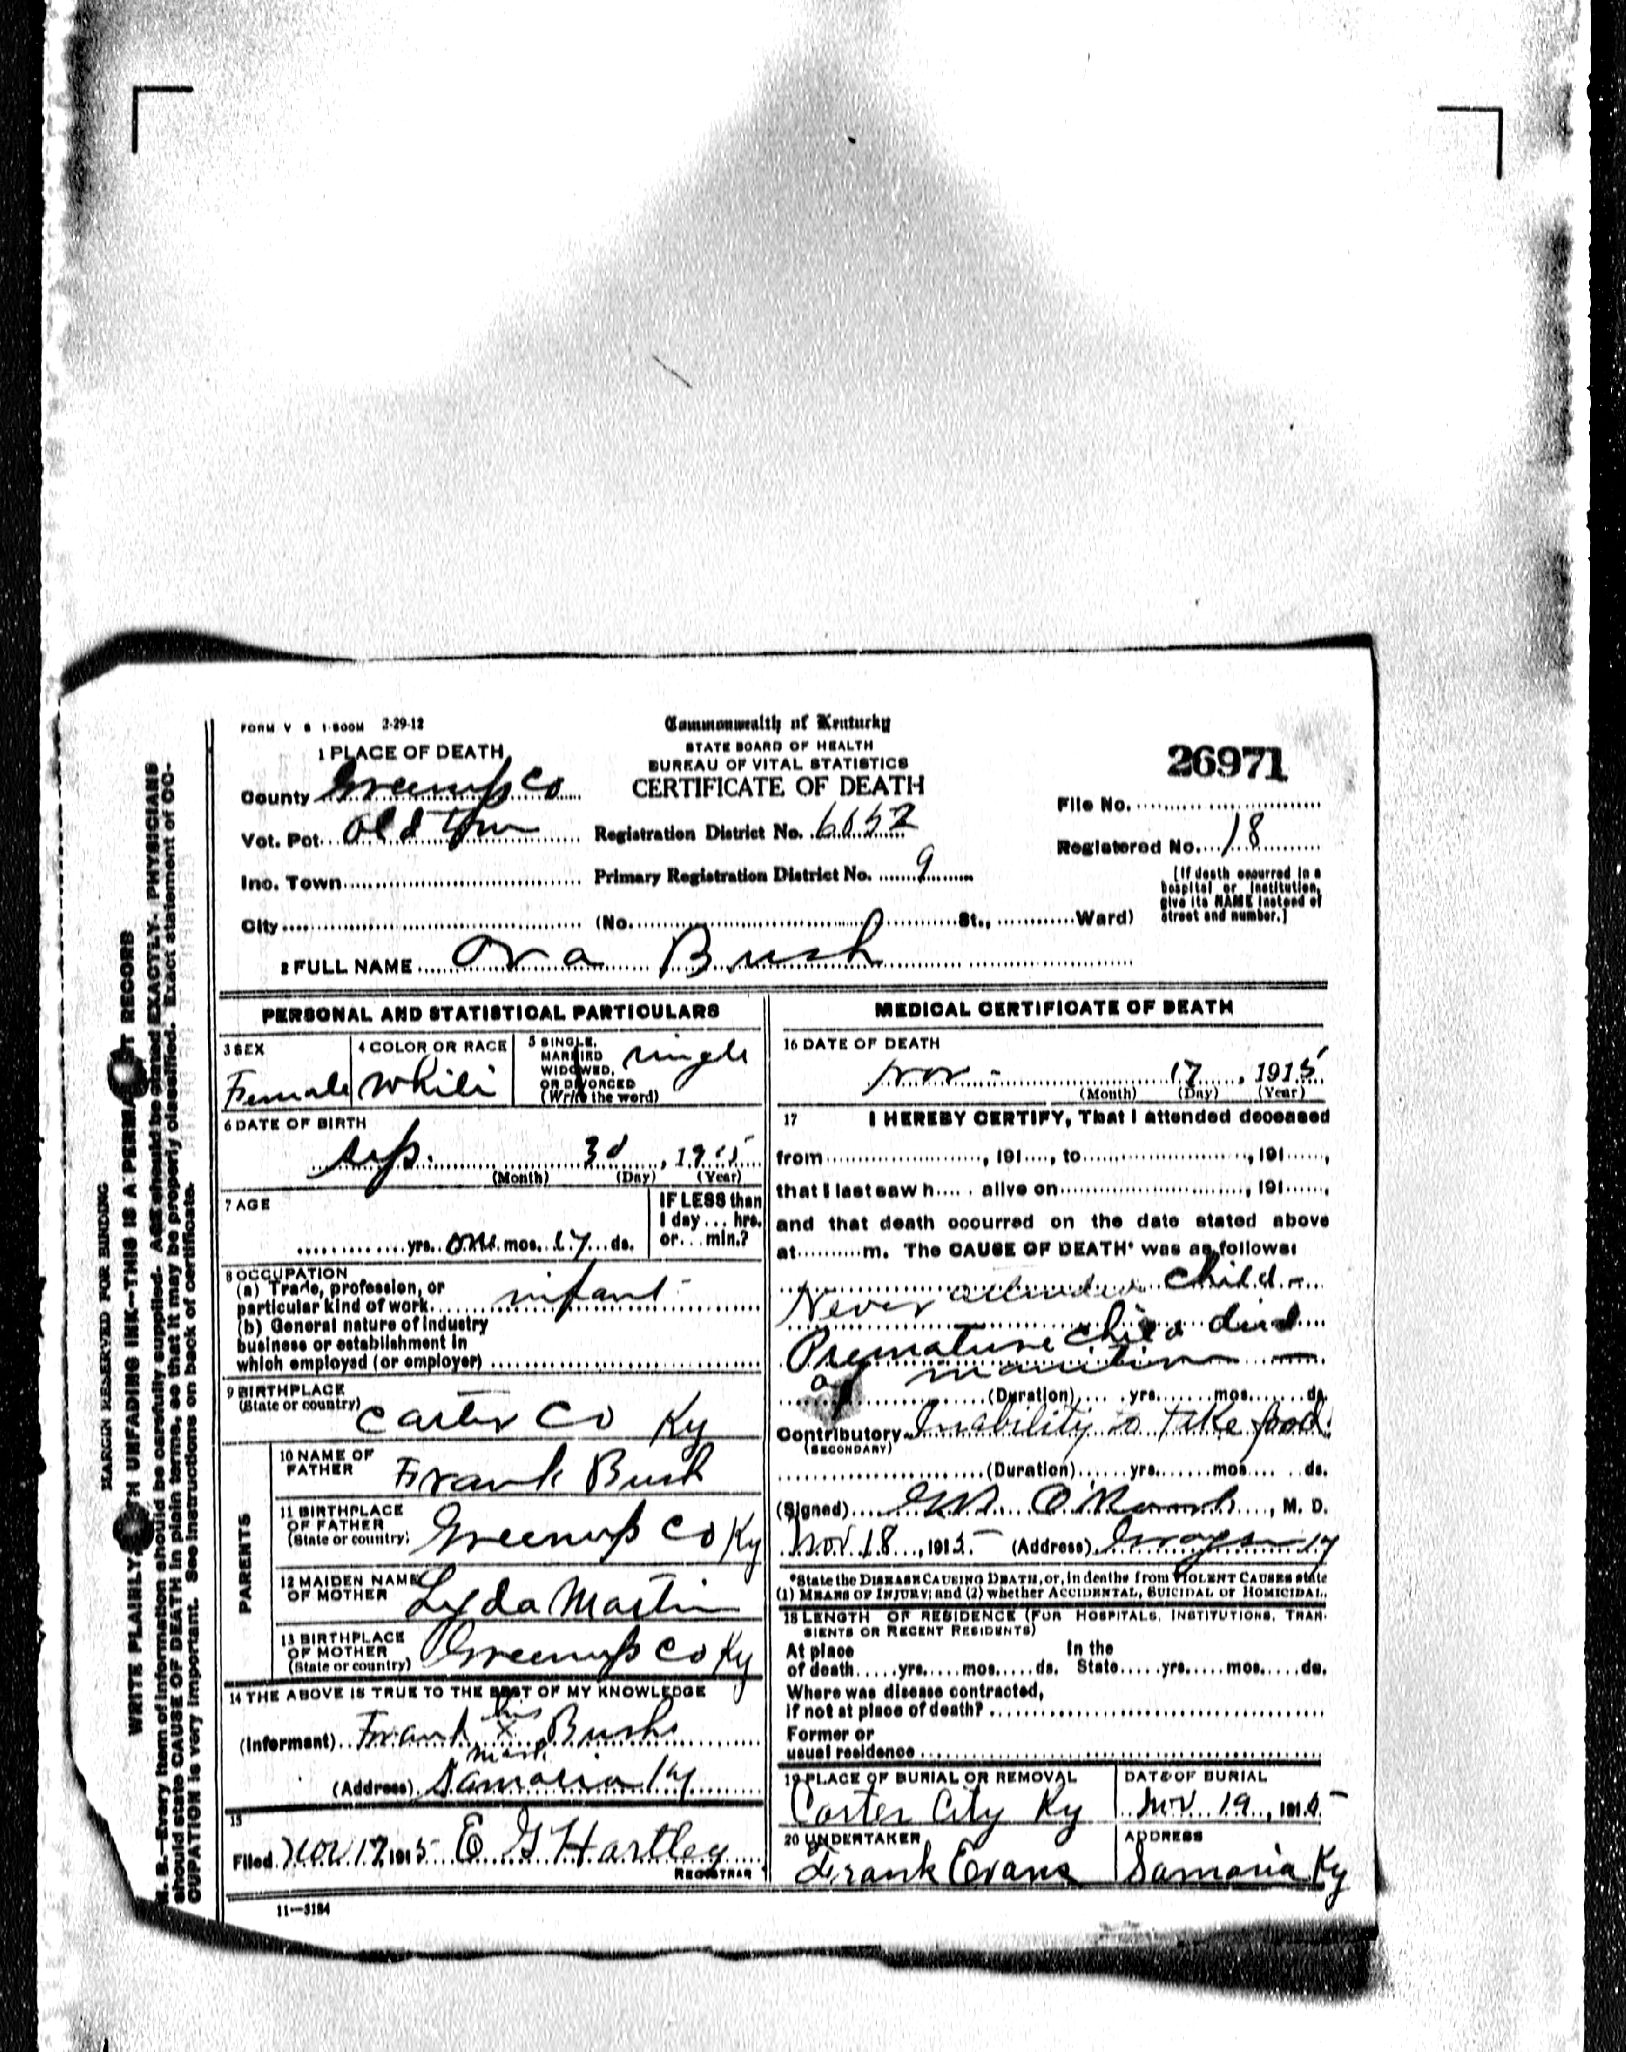 FORM V S 1-500M 2-29-12
Commonwealth of Kentucky
STATE BOARD OF HEALTH
BUREAU OF VITAL STATISTICS
CERTIFICATE OF DEATH
26971
1 PLACE OF DEATH
County Greenup Co
Vot. Pct. Old Town
Inc. Town
City
Registration District No.
Primary Registration District No. 9
(No. St., Ward)
File No.
Registered No. 18
[If death occurred in a
hospital or institution,
give its NAME instead of
street and number.]
2 FULL NAME Ora Bush
PERSONAL AND STATISTICAL PARTICULARS
3 SEX
Female
4 COLOR OR RACE
White
5 SINGLE,
MARRIED
WIDOWED,
OR DIVORCED
(Write the word)
single
6 DATE OF BIRTH
Sep. 30, 1915
(Month) (Day) (Year)
7 AGE
yrs. one mos. 17 ds.
IF LESS than
1 day ... hrs.
or ... min.?
8 OCCUPATION
(a) Trade, profession, or
particular kind of work infant
(b) General nature of industry
business or establishment in
which employed (or employer)
9 BIRTHPLACE
(State or country)
Carter Co Ky
PARENTS
10 NAME OF
FATHER
Frank Bush
11 BIRTHPLACE
OF FATHER
(State or country)
Greenup Co Ky
12 MAIDEN NAME
OF MOTHER
Lyda Martin
13 BIRTHPLACE
OF MOTHER
(State or country)
Greenup Co Ky
14 THE ABOVE IS TRUE TO THE BEST OF MY KNOWLEDGE
his
(Informant) Frank X Bush
mark
(Address) Samaria Ky
15
Filed Nov 17 1915 E G Hartley
REGISTRAR
11—3184
MEDICAL CERTIFICATE OF DEATH
16 DATE OF DEATH
Nov - 17, 1915
(Month) (Day) (Year)
17 I HEREBY CERTIFY, That I attended deceased
from , 191 , to , 191 ,
that I last saw h alive on , 191 ,
and that death occurred on the date stated above
at m. The CAUSE OF DEATH* was as follows:
Never attended child -
Premature child died
of
(Duration) yrs. mos. ds.
Contributory Inability to take food
(SECONDARY)
(Duration) yrs. mos. ds.
(Signed) , M. D.
Nov 18, 1915 (Address) Ky
*State the DISEASE CAUSING DEATH, or, in deaths from VIOLENT CAUSES state
(1) MEANS OF INJURY; and (2) whether ACCIDENTAL, SUICIDAL or HOMICIDAL.
18 LENGTH OF RESIDENCE (FOR HOSPITALS, INSTITUTIONS, TRAN-
SIENTS OR RECENT RESIDENTS)
At place In the
of death yrs. mos. ds. State yrs. mos. ds.
Where was disease contracted,
if not at place of death?
Former or
usual residence
19 PLACE OF BURIAL OR REMOVAL
Carter City Ky
DATE OF BURIAL
Nov 19, 1915
20 UNDERTAKER
Frank Evans
ADDRESS
Samaria Ky
MARGIN RESERVED FOR BINDING
WRITE PLAINLY, WITH UNFADING INK—THIS IS A PERMANENT RECORD
N. B.—Every item of information should be carefully supplied. AGE should be stated EXACTLY. PHYSICIANS
should state CAUSE OF DEATH in plain terms, so that it may be properly classified. Exact statement of OC-
CUPATION is very important. See instructions on back of certificate.